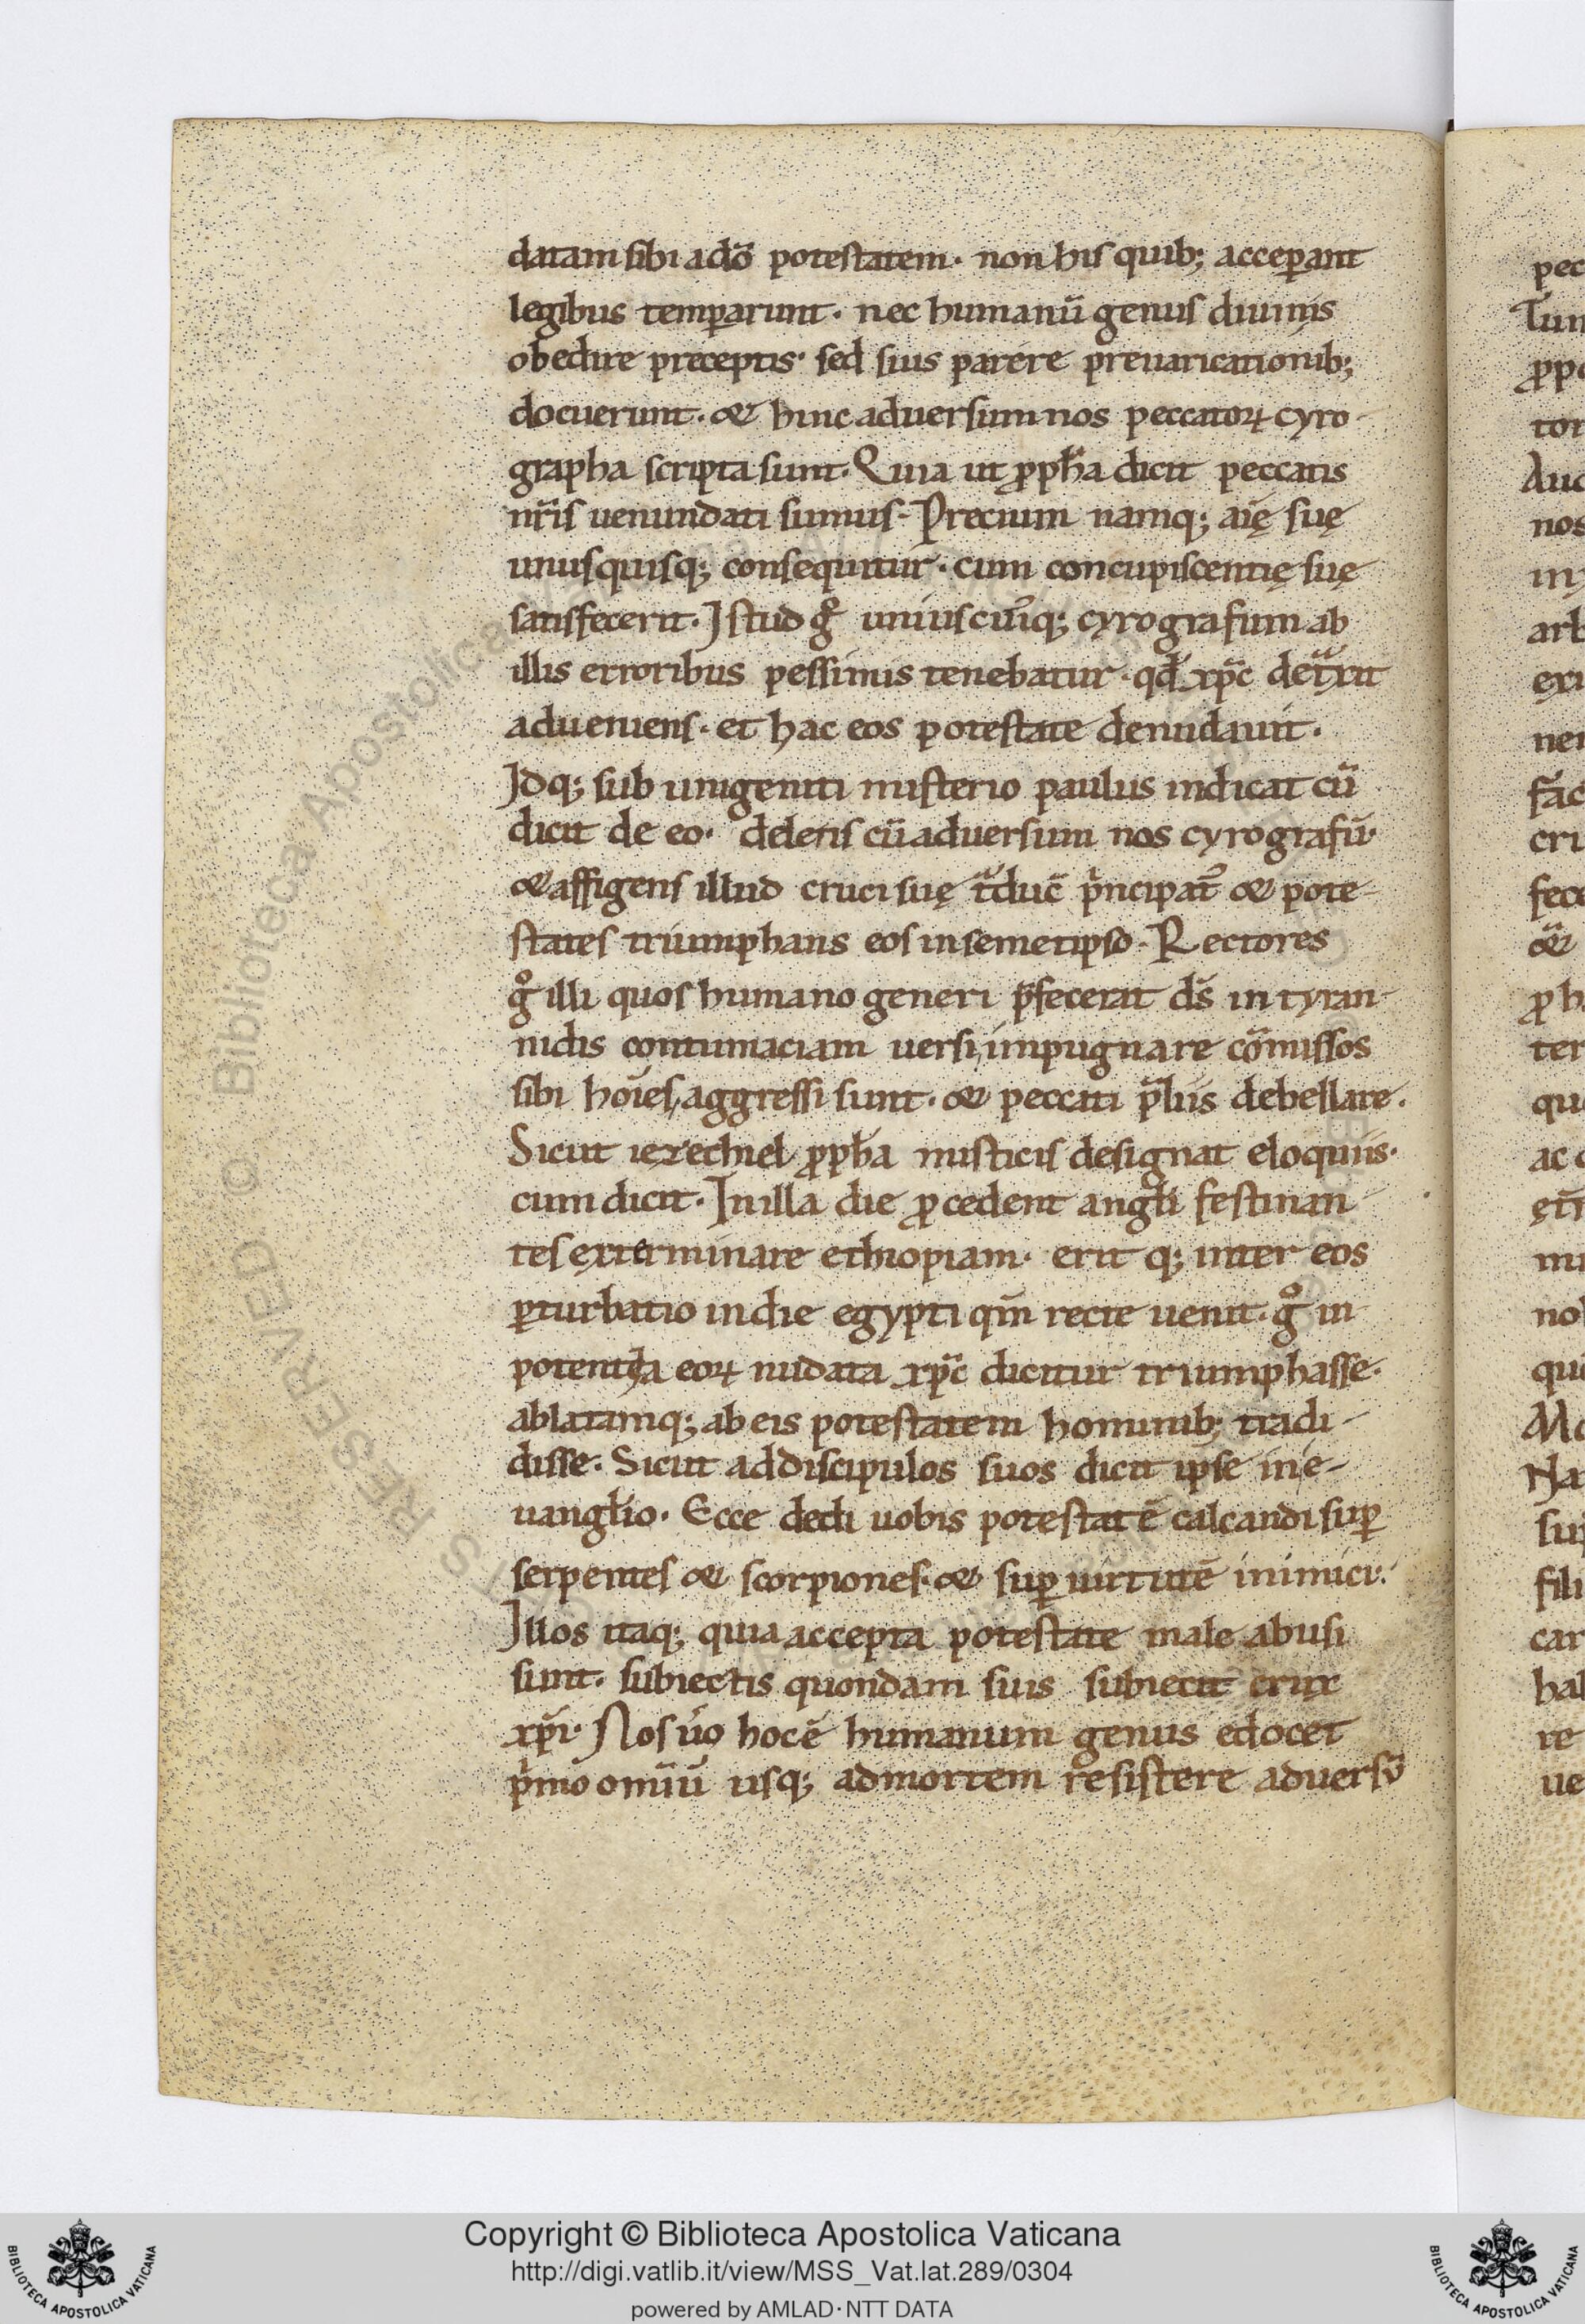 datam sibi a dō potestatem· non his quib; acceperant
legibus temperarunt· nec humanū genus diuinis
obedire preceptis· sed suis parere preuaricationib;
docuerunt· & hinc aduersum nos peccatoꝝ cyro-
grapha scripta sunt· Quia ut ꝓph̄a dicit peccatis
nr̄is uenundati sumus· Precium namq; aīę suę
unusquisq; consequitur· cum concupiscentię suę
satisfecerit· Istud gͦ uniuscuiꝰq; cyrografum ab
illis erroribus pessimis tenebatur· qd̄ xp̄c detͣxit
adueniens· et hac eos potestate denudauit·
Idq; sub unigeniti misterio paulus indicat cū
dicit de eo· delens cū aduersum nos cyrografū·
& affigens illud cruci suę tͣduc̄ pͥncipatꝰ & pote-
states triumphans eos in semetipso· Rectores
gͦ illi quos humano generi p̄fecerat d̄s in tyran-
nidis contumaciam uersi, impugnare cōmissos
sibi hoīes, aggressi sunt· & peccati p̄liis debellare·
Sicut iezechiel ꝓph̄a misticis designat eloquiis·
cum dicit· In illa die ꝓcedent angl̄i festinan-
tes exterminare ethiopiam· erit q; inter eos
ꝑturbatio in die egypti qm̄ recte uenit· gͦ in
potentia eoꝝ nudata xp̄c dicitur triumphasse·
ablatamq; ab eis potestatem hominib; tradi-
disse· Sicut ad discipulos suos dicit ipse in e-
uangl̄io· Ecce dedi uobis potestatē calcandi suꝑ
serpentes & scorpiones· & suꝑ uirtutē inimici·
Illos itaq; quia accepta potestate male abusi
sunt· subiectis quondam suis subiecit crux
xp̄i· Nos ūo hoc ē humanum genus edocet
pͥmo omīū usq; ad mortem resistere aduersū
pec
Tun
ꝓp
tor
Auc
nos
in
arb
ex
ne
fac
cri
fece
ꝓh
ter
qu
ac
mi
no
qu
Mo
Na
su
fili
car
hal
re
ue
© Biblioteca Apostolica Vaticana
RESERVED
Copyright © Biblioteca Apostolica Vaticana
http://digi.vatlib.it/view/MSS_Vat.lat.289/0304
powered by AMLAD·NTT DATA
BIBLIOTECA APOSTOLICA VATICANA
BIBLIOTECA APOSTOLICA VATICANA